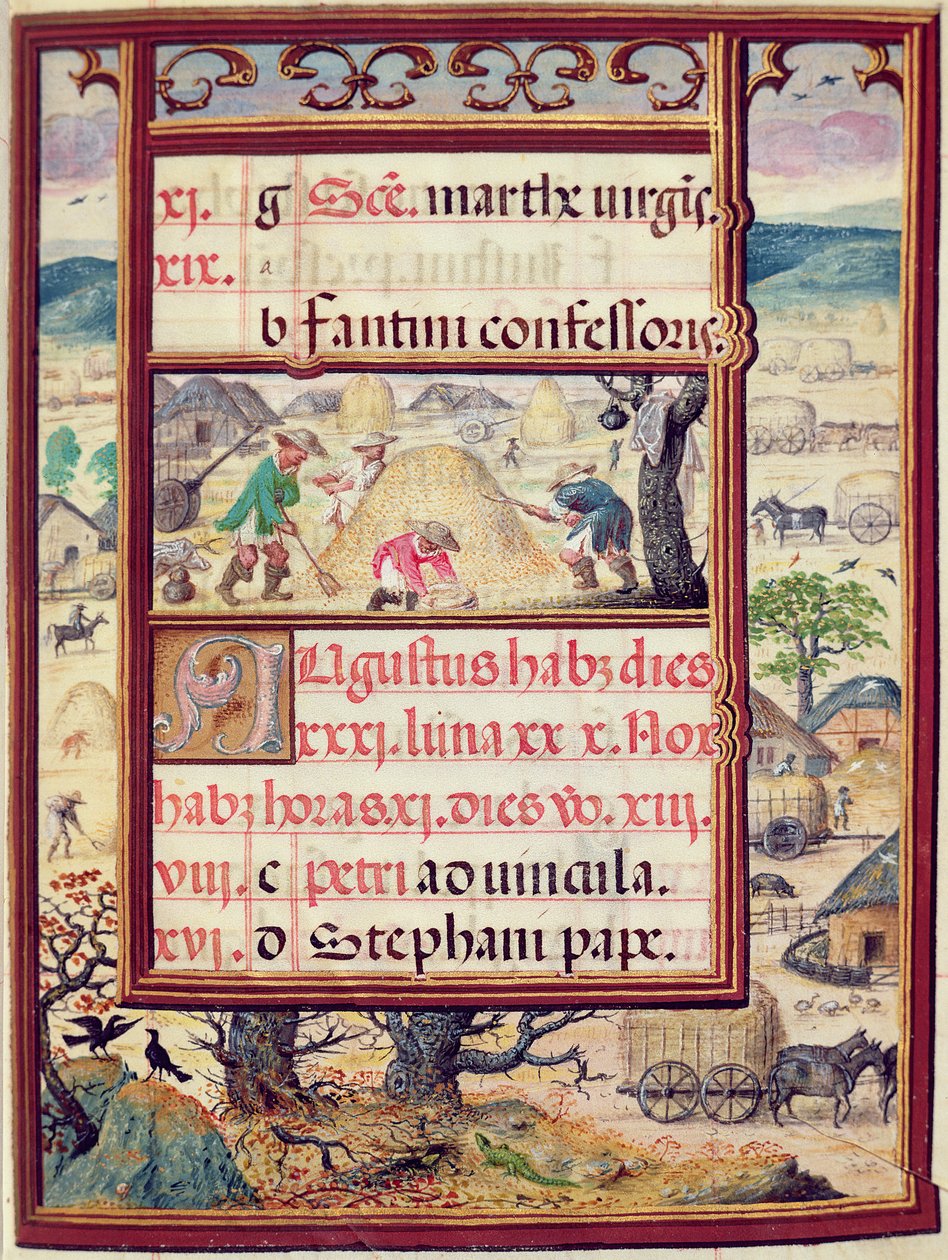 xj. g Scē. marthæ uirgiſ.
xix. a
b Fantini confeſſoris.
AUguſtus habꝫ dies
xxxj. luna xx x. Nox
habꝫ horas.xj. dies v̊o. xiij.
viij. c petri ad uincula.
xvj. d Stephani papæ.